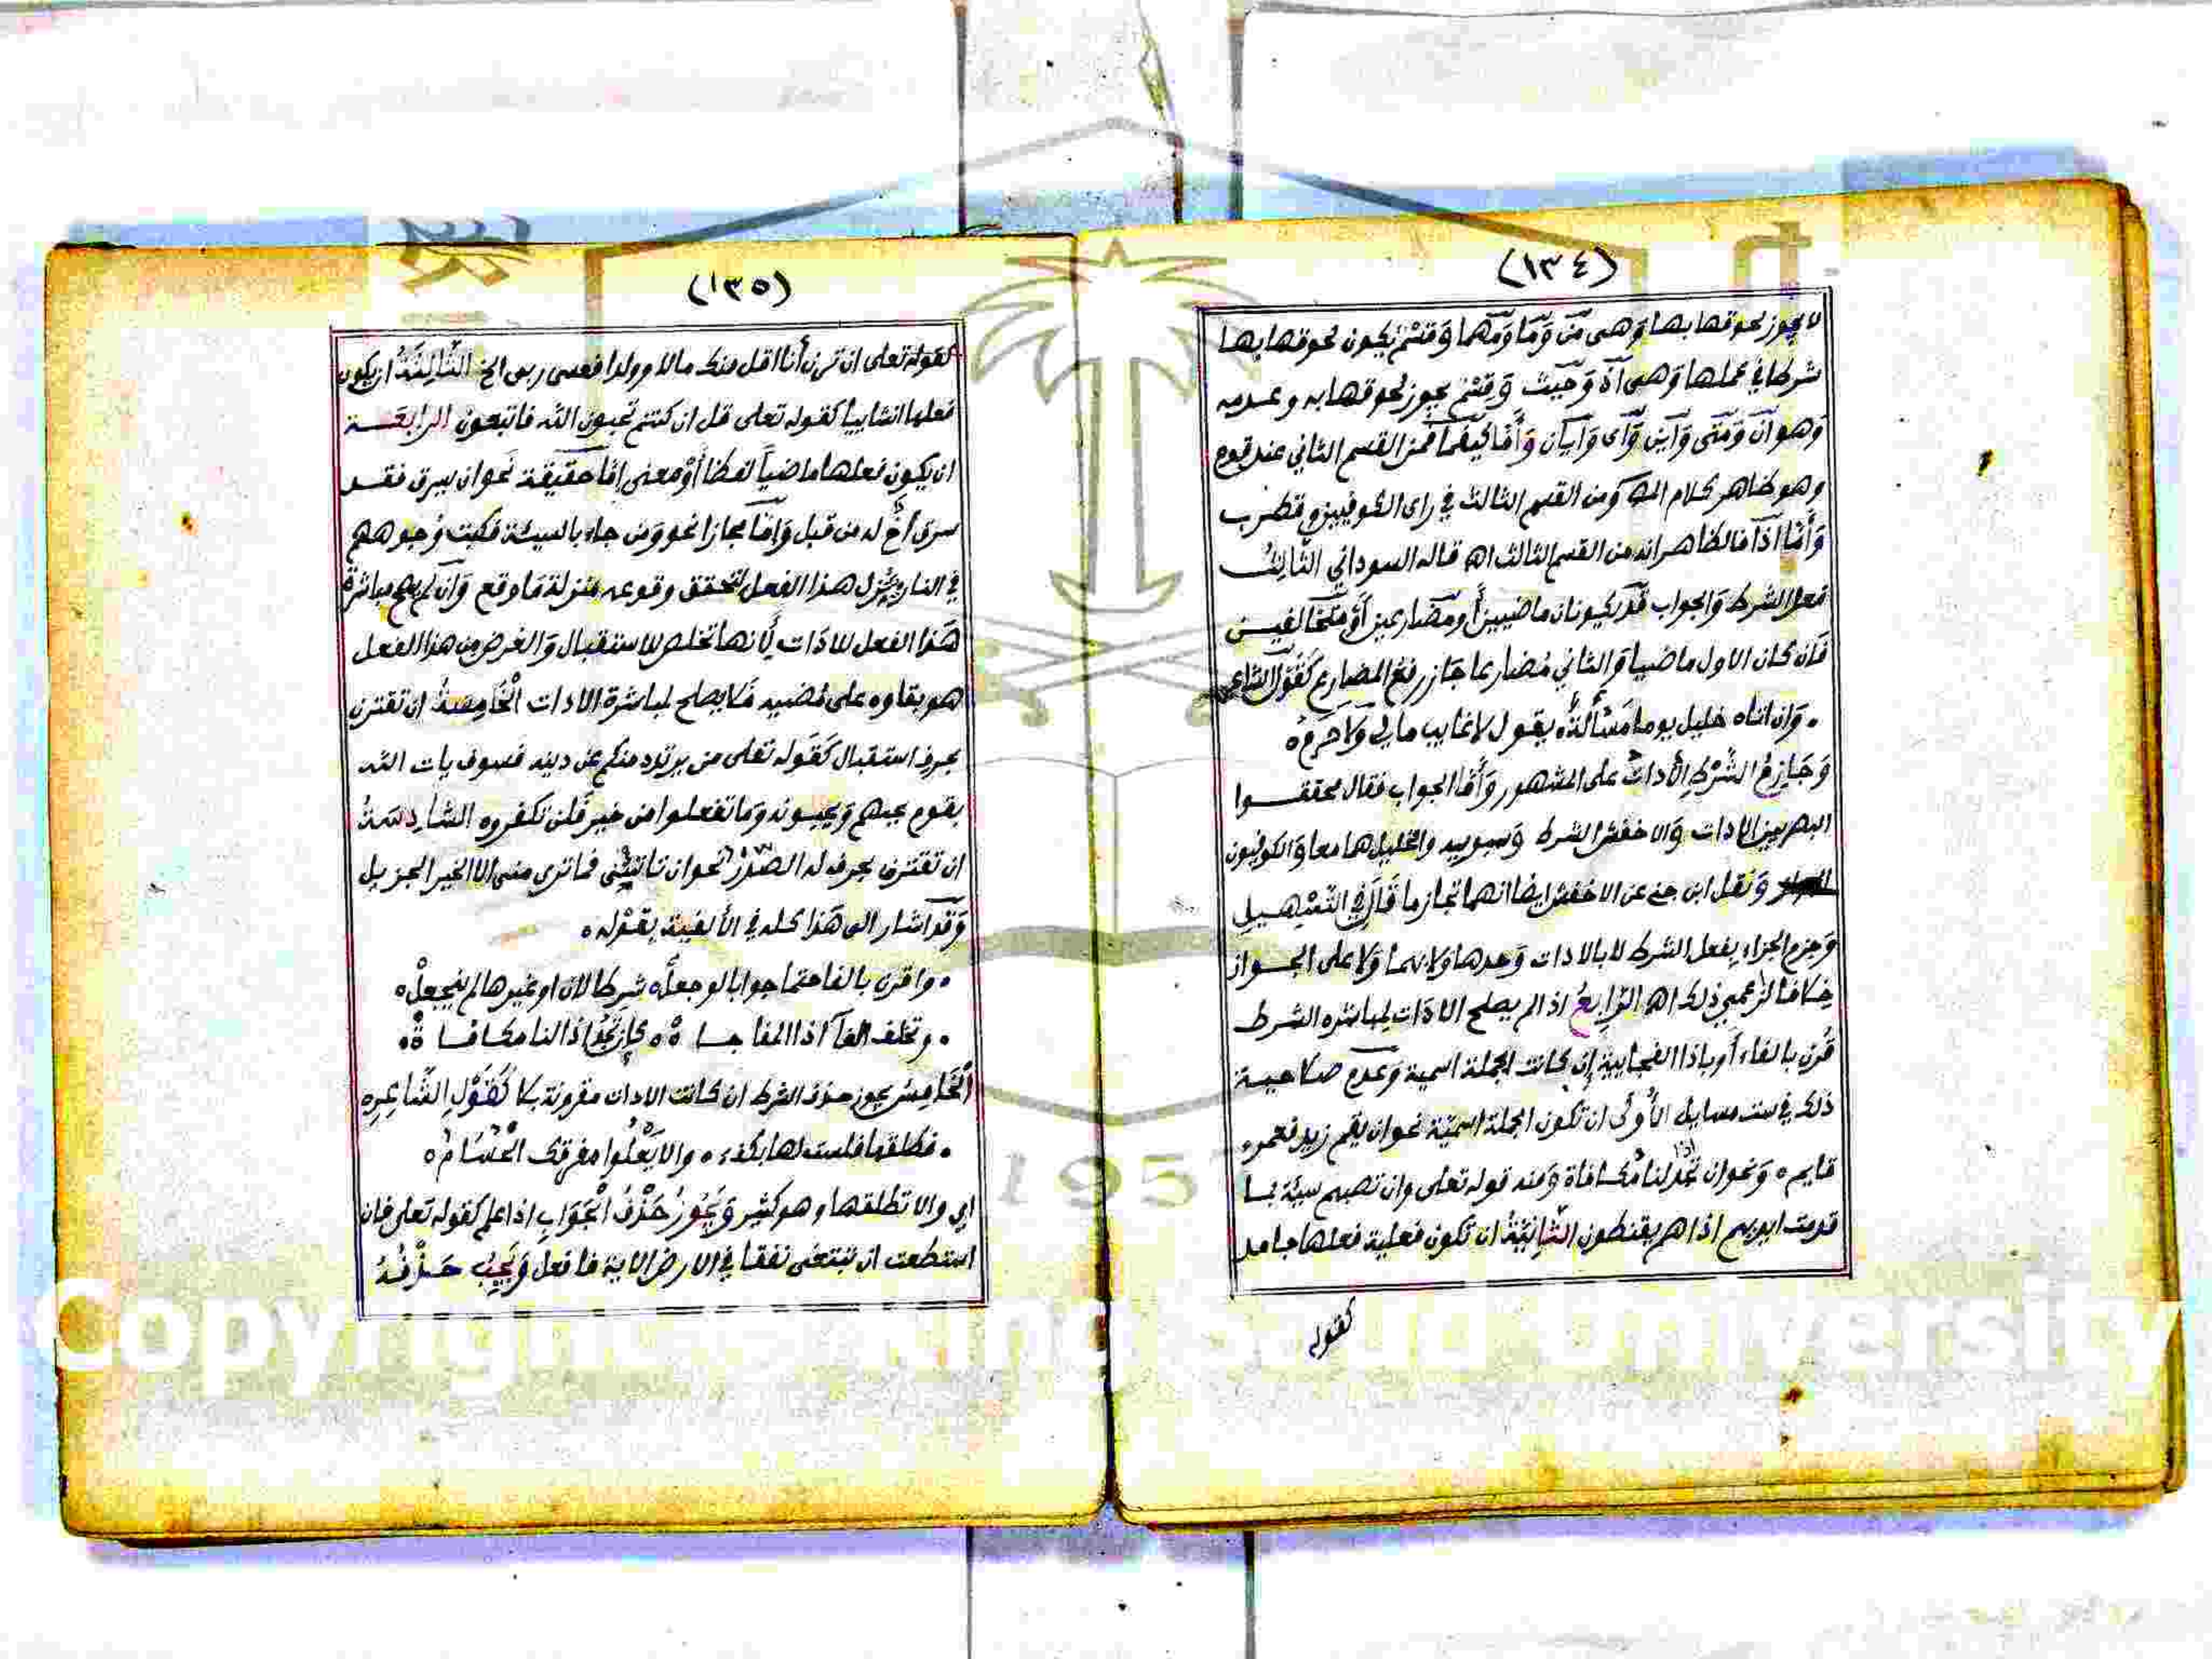 (١٣٤)
لا يجوز لحوقها بها وَهى مَن وَمَا وَمَهما وَقسْم يكون لحوقها بها
شرطا في عملها وَهى اذ وَحَيث وَقِسْم يجوز لحوقها به وعدمه
وَهو ان وَمَتى وَاين وَاى وَايان وَأمّا كيفما فمن القسم الثاني عند قوم
وهو ظاهر كلام المص وَمن القسم الثالث في راى الكوفيين وقطرب
وَأمّا اذا فالظاهر انه من القسم الثالث اه قاله السوداني الثّالِثُ
فعل الشرط وَالجواب قد يكونان ماضيين أو مضارعين أو متخالفين
فَان كان الاول ماضيا وَالثاني مُضارعا جَاز رفعُ المضارع كَقَوْل الشاعر
۰ وَان اتاه خليل يوما مَسْألةٍ ۰ يقول لا غايب مالي وَلا حَرِمُ ۰
وَجَازِمُ الشَّرْطِ الأداتُ على المشهور وَأمّا الجواب فقال محققــوا
البصريين الادات وَالاخفش الشرط وَسيبويه والخليل هما معا وَالكوفيون
وَنقل ابن جني عن الاخفش ايضا انهما تجازما قَالَ في التّسْهيل
وَجزم الجزاء بفعل الشرط لا بالادات وَحدها وَلا بهما وَلا على الجــوار
خلافا لزاعمي ذلك اه الرّابِعُ اذا لم يصلح الادَات لمباشره الشرط
قُرن بالفاء أو باذا الفجاييه إن كانت الجملة اسمية وَعدم صلاحية
ذلك في ست مسايل الأُولى ان تكون الجملة اسميّة نحو ان يقم زيد فعمرو
قايم ۰ وَنحو ان تجد اذا لنا مُكافاة وَمنه قوله تعلى وان تصبهم سيئة بما
قدمت ايديهم اذا هم يقنطون الثّانِيَةُ ان تكون فعلية فعلها جامد
كقوله
(١٣٥)
كقوله تعلى ان ترن أنا اقل منك مالا وولدا فعسى ربى الخ الثّالِثَةُ ان يكون
فعلها انشاييا كقوله تعلى قل ان كنتم تحبون الله فاتبعون الرابِعَــة
ان يكون فعلها ماضياً لفظا أوْ معنى إمّا حقيقة نحو ان يسرق فقــد
سرق أخٌ له من قبل وَإمّا مجازا نحو وَمن جاء بالسيئة فكبت وُجوههم
في النار وينزل هذا الفعل لتحقق وقوعه منزلة مَا وقع وَان لم يصح مباشرة
هَذا الفعل للادَات لأنها تخلص للاستقبال وَالغرض من هذا الفعل
هو بقاوه على مُضيه فلا يصلح لمباشرة الادات الْخَامِسَةُ ان تقترن
بحرف استقبال كَقَوله تعلى من يرتدد منكم عن دينه فسوف يات الله
بقوم يحبهم وَيحبونه وَما تفعلوا من خير فَلن تكفروه السّادِسَةُ
ان تقترن بحرف له الصّدْرُ نحو ان تاتيني فما ترى منى الا الخير الجزيل
وَقد اشار الى هَذا كله في الألفية بقوْله ۰
۰ واقرن بالفا حتما جوابا لو جعل ۰ شرطا لان او غيرها لم ينجعلْ ۰
۰ وتخلف الفآ اذا المفا جــا ةْ ۰ كإن تَجُدْ اذا لنا مكافــا ةْ ۰
الْخَامِسُ يجوز حذف الشرط ان كانت الادات مقرونة بلا كَقَوْلِ الشّاعِرِ ۰
۰ فطلقها فلست لها بكفء ۰ والا يَعْلُوا مفرقك الْحُسَامُ ۰
اي والا تطلقها وهو كثير وَيَجُوزُ حَذْفُ الْجَوَابِ اذا علم كقوله تعلى فان
استطعت ان تبتغى نفقا في الارض الاية فافعل وَيَجِبُ حَــذْفُــهُ
Copyright © King Saud University
1957